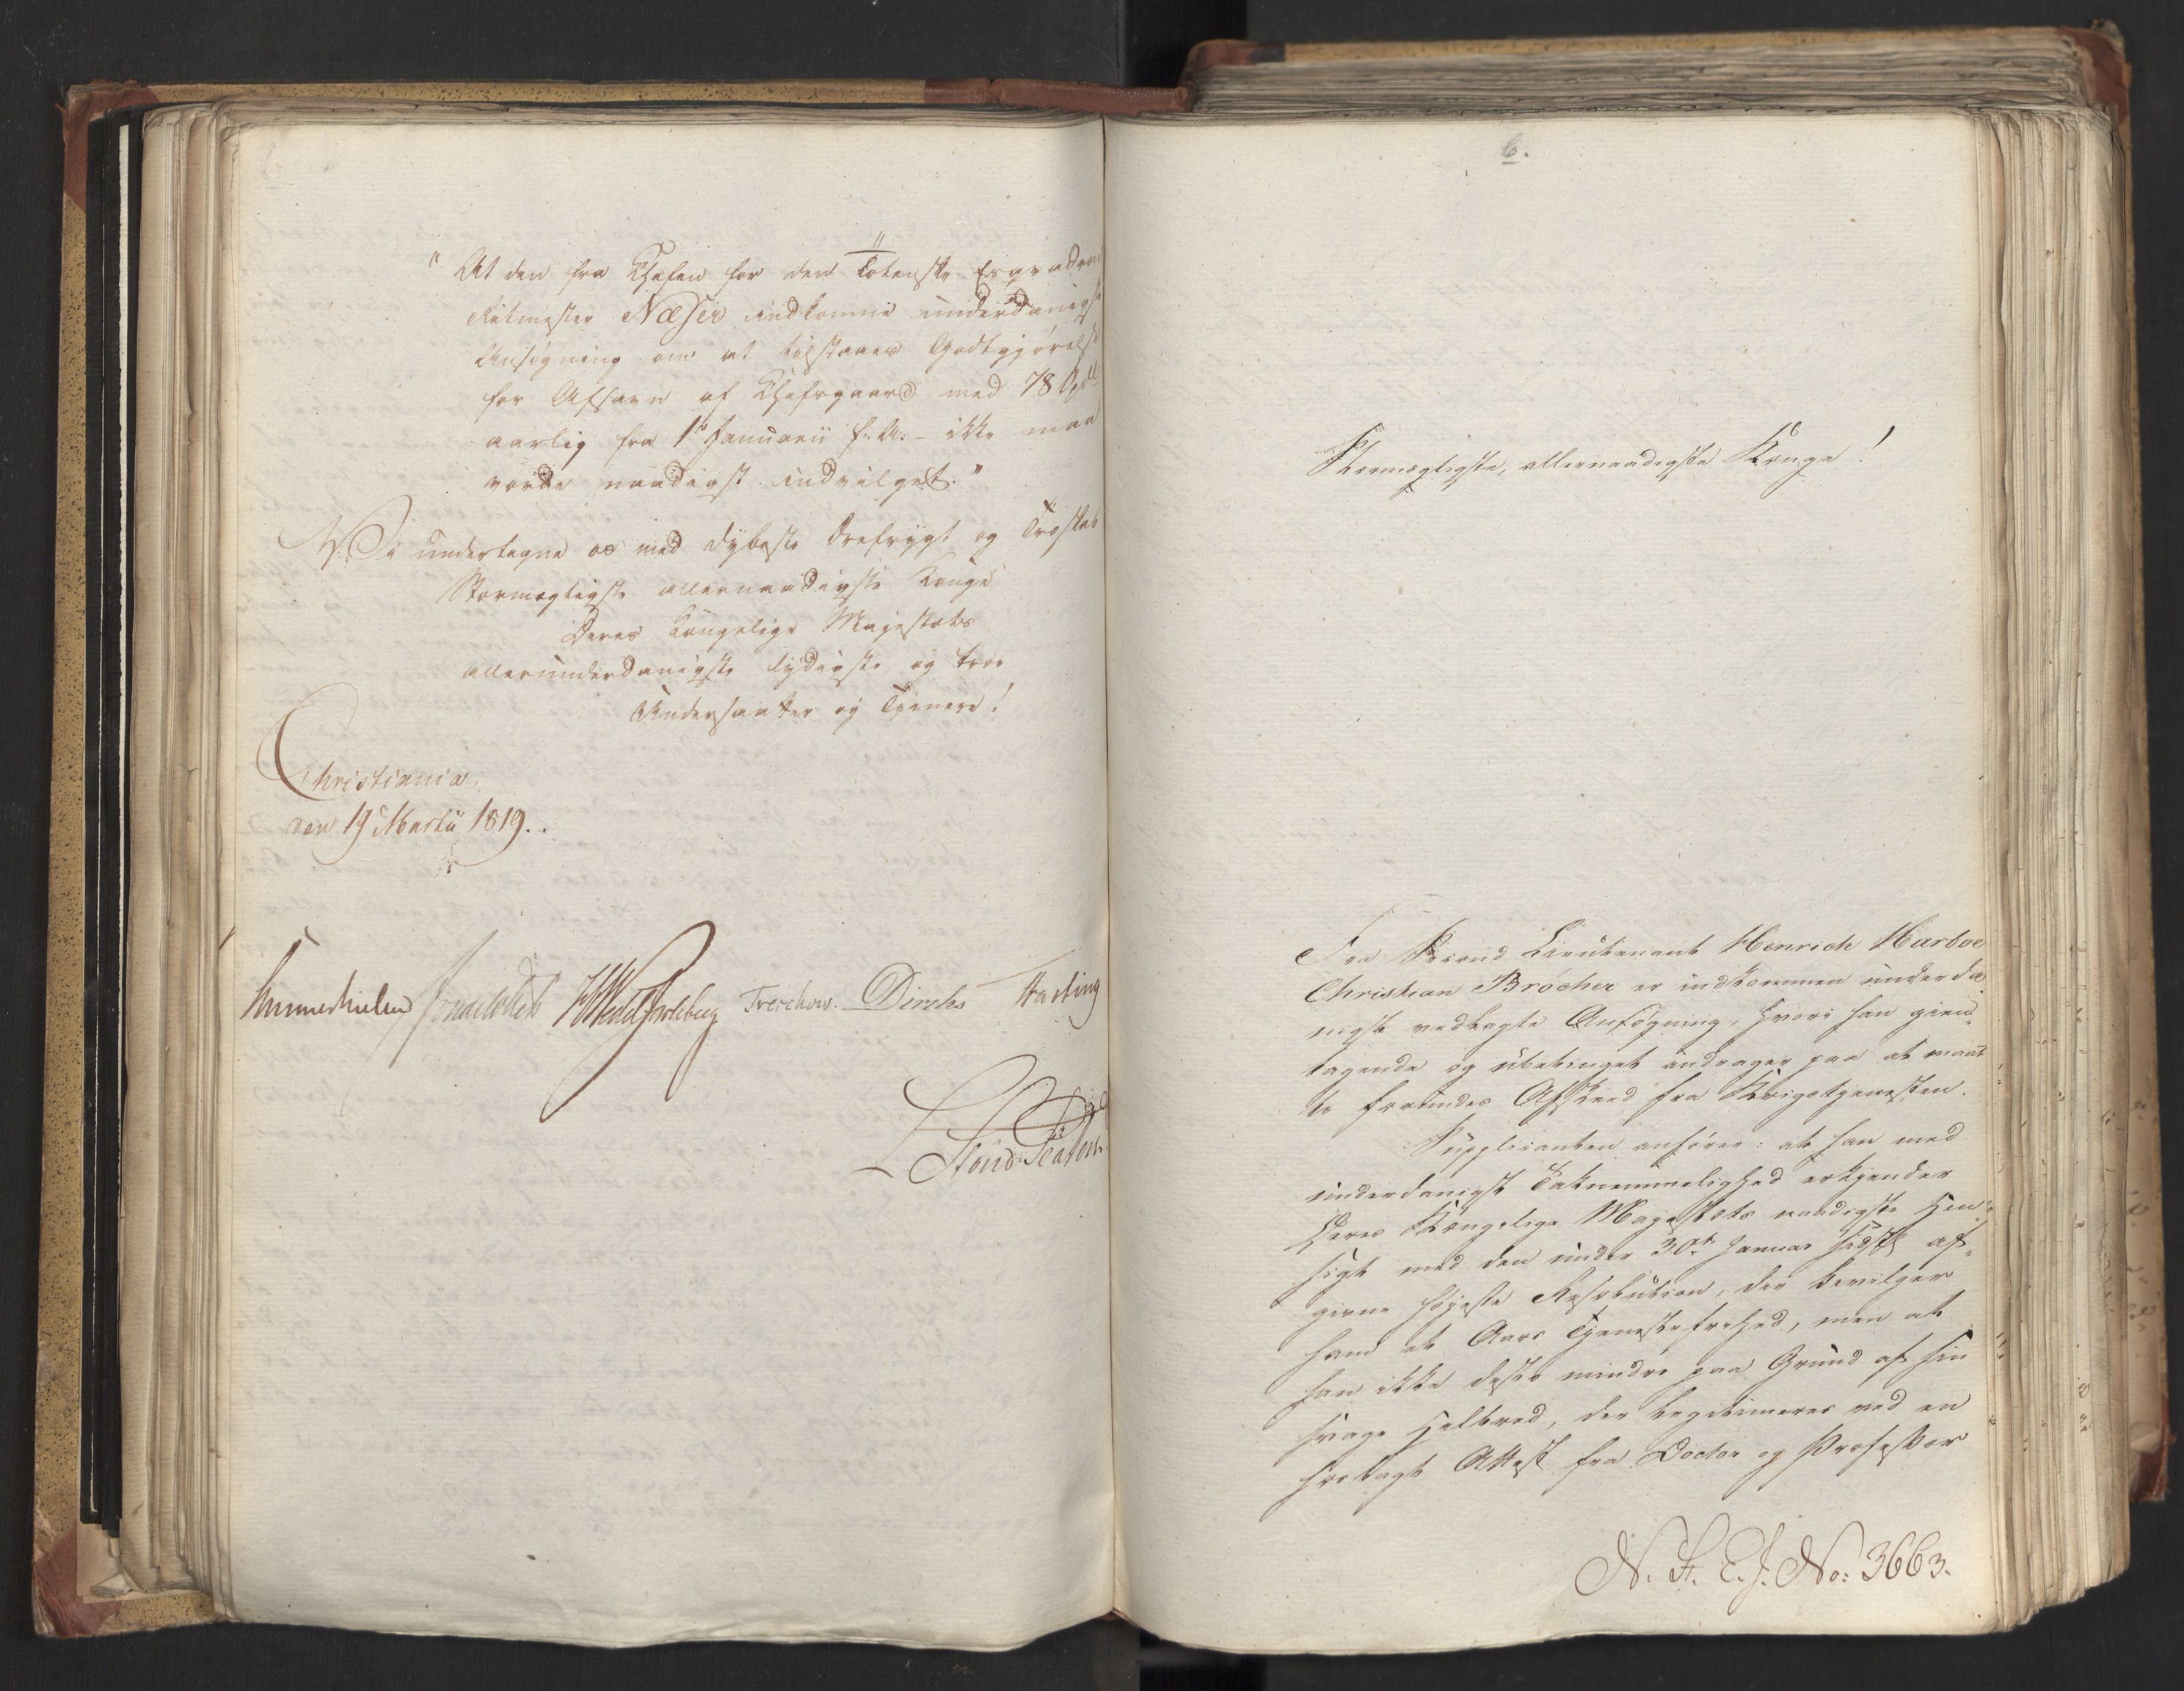 "At den fra Chefen for den Totenske Esqvadron
Ritmester Næser indkomne underdanigste
Ansøgning om at tilstaaes Godtgjørelse
for Afsavn af Chefsgaard med 78 Spd
aarlig fra 1ste Januarii f: A: - ikke maa
vorde naadigst indvilget."
Vi undertegne os med dybeste Ærefrygt og Troskab
Stormægtigste allernaadigste Konge
Deres Kongelige Majestæts
allerunderdanigste lydigste og troe
Undersaatter og Tjenere!
Christiania,
den 19 Martii 1819.
Sommerhielm Jonas Collett HWedel Jarlsberg Treschow. Diriks Fasting
6.
Stormægtigste, allernaadigste Konge!
Fra Second Lieutenant Henrich Harboe
Christian Bröcher er indkommen underda-
nigst vedlagte Ansøgning, hvori han gien-
tagende og ubetinget andrager paa at maat-
te forundes Afskeed fra Krigstjenesten.
Supplicanten anfører: at han med
underdanigst Taknemmelighed erkjender
Deres Kongelige Majestæts naadigste Hen-
sigt med den under 30te Januar sidstl. af-
givne høyeste Resolution, der bevilger
ham et Aars Tjenestefrihed, men at
han ikke desto mindre paa Grund af sin
svage Helbred, der legitimeres ved en
forelagt Attest fra Doctor og Professor
N. St. E. J. No: 3663.